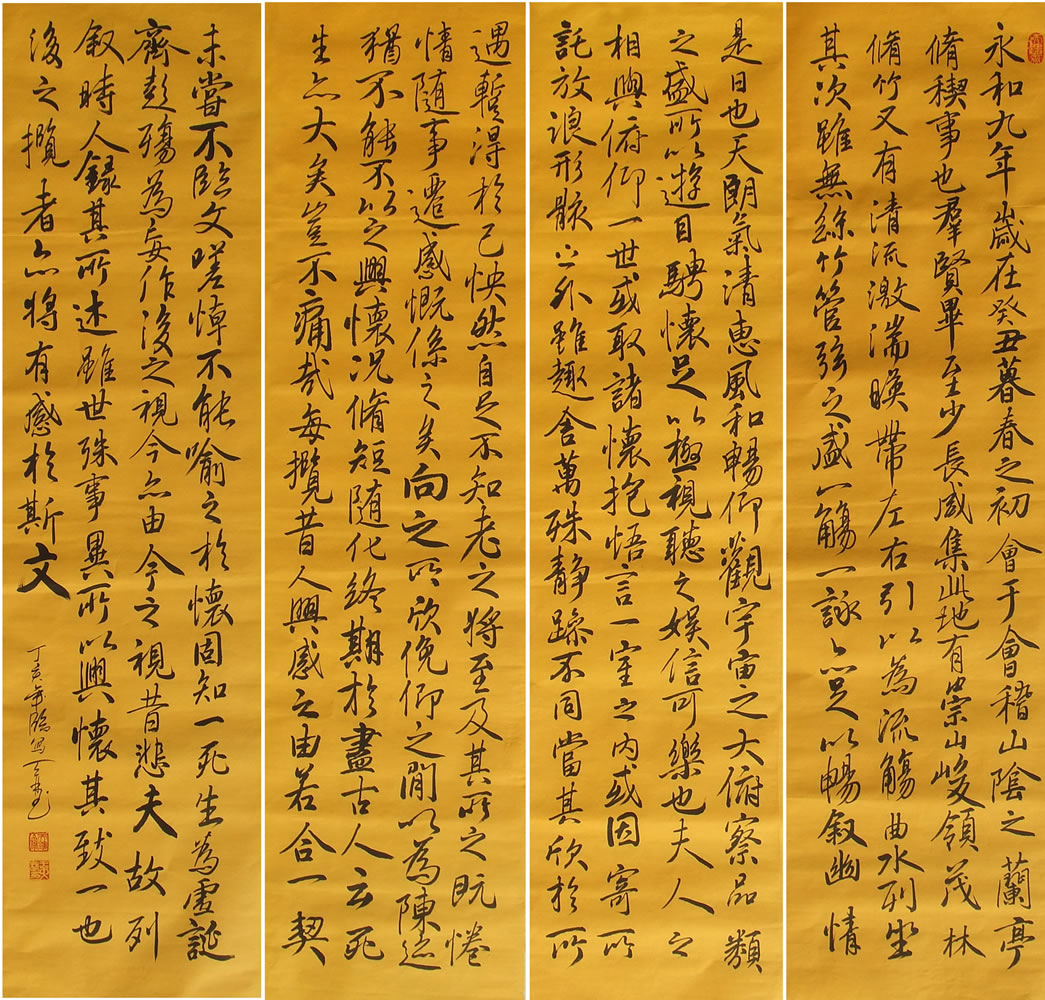 永和九年歲在癸丑暮春之初會于會稽山陰之蘭亭
脩稧事也羣賢畢至少長咸集此地有崇山峻領茂林
脩竹又有清流激湍暎帶左右引以為流觴曲水列坐
其次雖無絲竹管弦之盛一觴一詠亦足以暢叙幽情
是日也天朗氣清惠風和暢仰觀宇宙之大俯察品類
之盛所以遊目騁懷足以極視聽之娛信可樂也夫人之
相與俯仰一世或取諸懷抱悟言一室之內或因寄所
託放浪形骸之外雖趣舍萬殊靜躁不同當其欣於所
遇暫得於己怏然自足不知老之將至及其所之既惓
情隨事遷感慨係之矣向之所欣俛仰之閒以為陳迹
猶不能不以之興懷況脩短隨化終期於盡古人云死
生亦大矣豈不痛哉每攬昔人興感之由若合一契
未嘗不臨文嗟悼不能喻之於懷固知一死生為虛誕
齊彭殤為妄作後之視今亦由今之視昔悲夫故列
叙時人錄其所述雖世殊事異所以興懷其致一也
後之攬者亦將有感於斯文
丁亥年臨寫